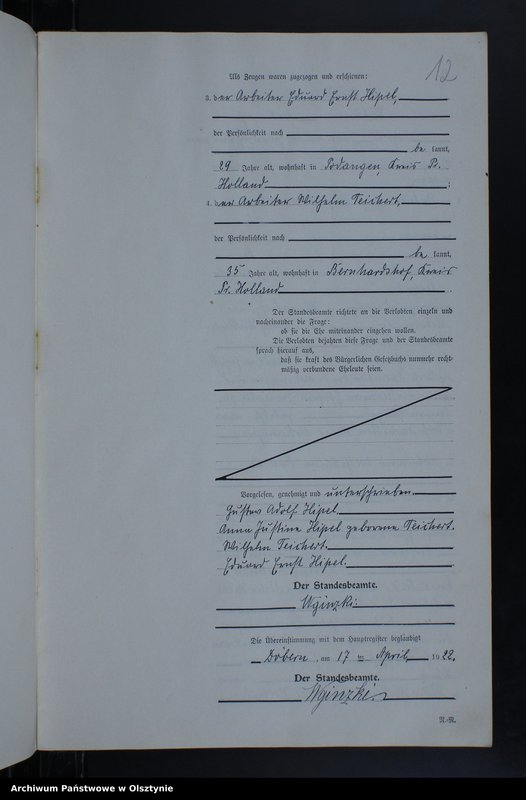 12
Als Zeugen waren zugezogen und erschienen:
3. der Arbeiter Eduard Ernst Hipel,
der Persönlichkeit nach
be kannt,
29 Jahre alt, wohnhaft in Podangen, Kreis Pr.
Holland ;
4. der Arbeiter Wilhelm Teichert,
der Persönlichkeit nach
be kannt,
35 Jahre alt, wohnhaft in Bernhardshof, Kreis
Pr. Holland .
Der Standesbeamte richtete an die Verlobten einzeln und
nacheinander die Frage:
ob sie die Ehe miteinander eingehen wollen.
Die Verlobten bejahten diese Frage und der Standesbeamte
sprach hierauf aus,
daß sie kraft des Bürgerlichen Gesetzbuchs nunmehr recht-
mäßig verbundene Eheleute seien.
Vorgelesen, genehmigt und unterschrieben.
Gustav Adolf Hipel.
Anna Justine Hipel geborene Teichert.
Wilhelm Teichert.
Eduard Ernst Hipel.
Der Standesbeamte.
Wginzki.
Die Übereinstimmung mit dem Hauptregister beglaubigt
Döbern, am 17 ten April 1922.
Der Standesbeamte.
Wginzki.
N.-R.
Archiwum Państwowe w Olsztynie